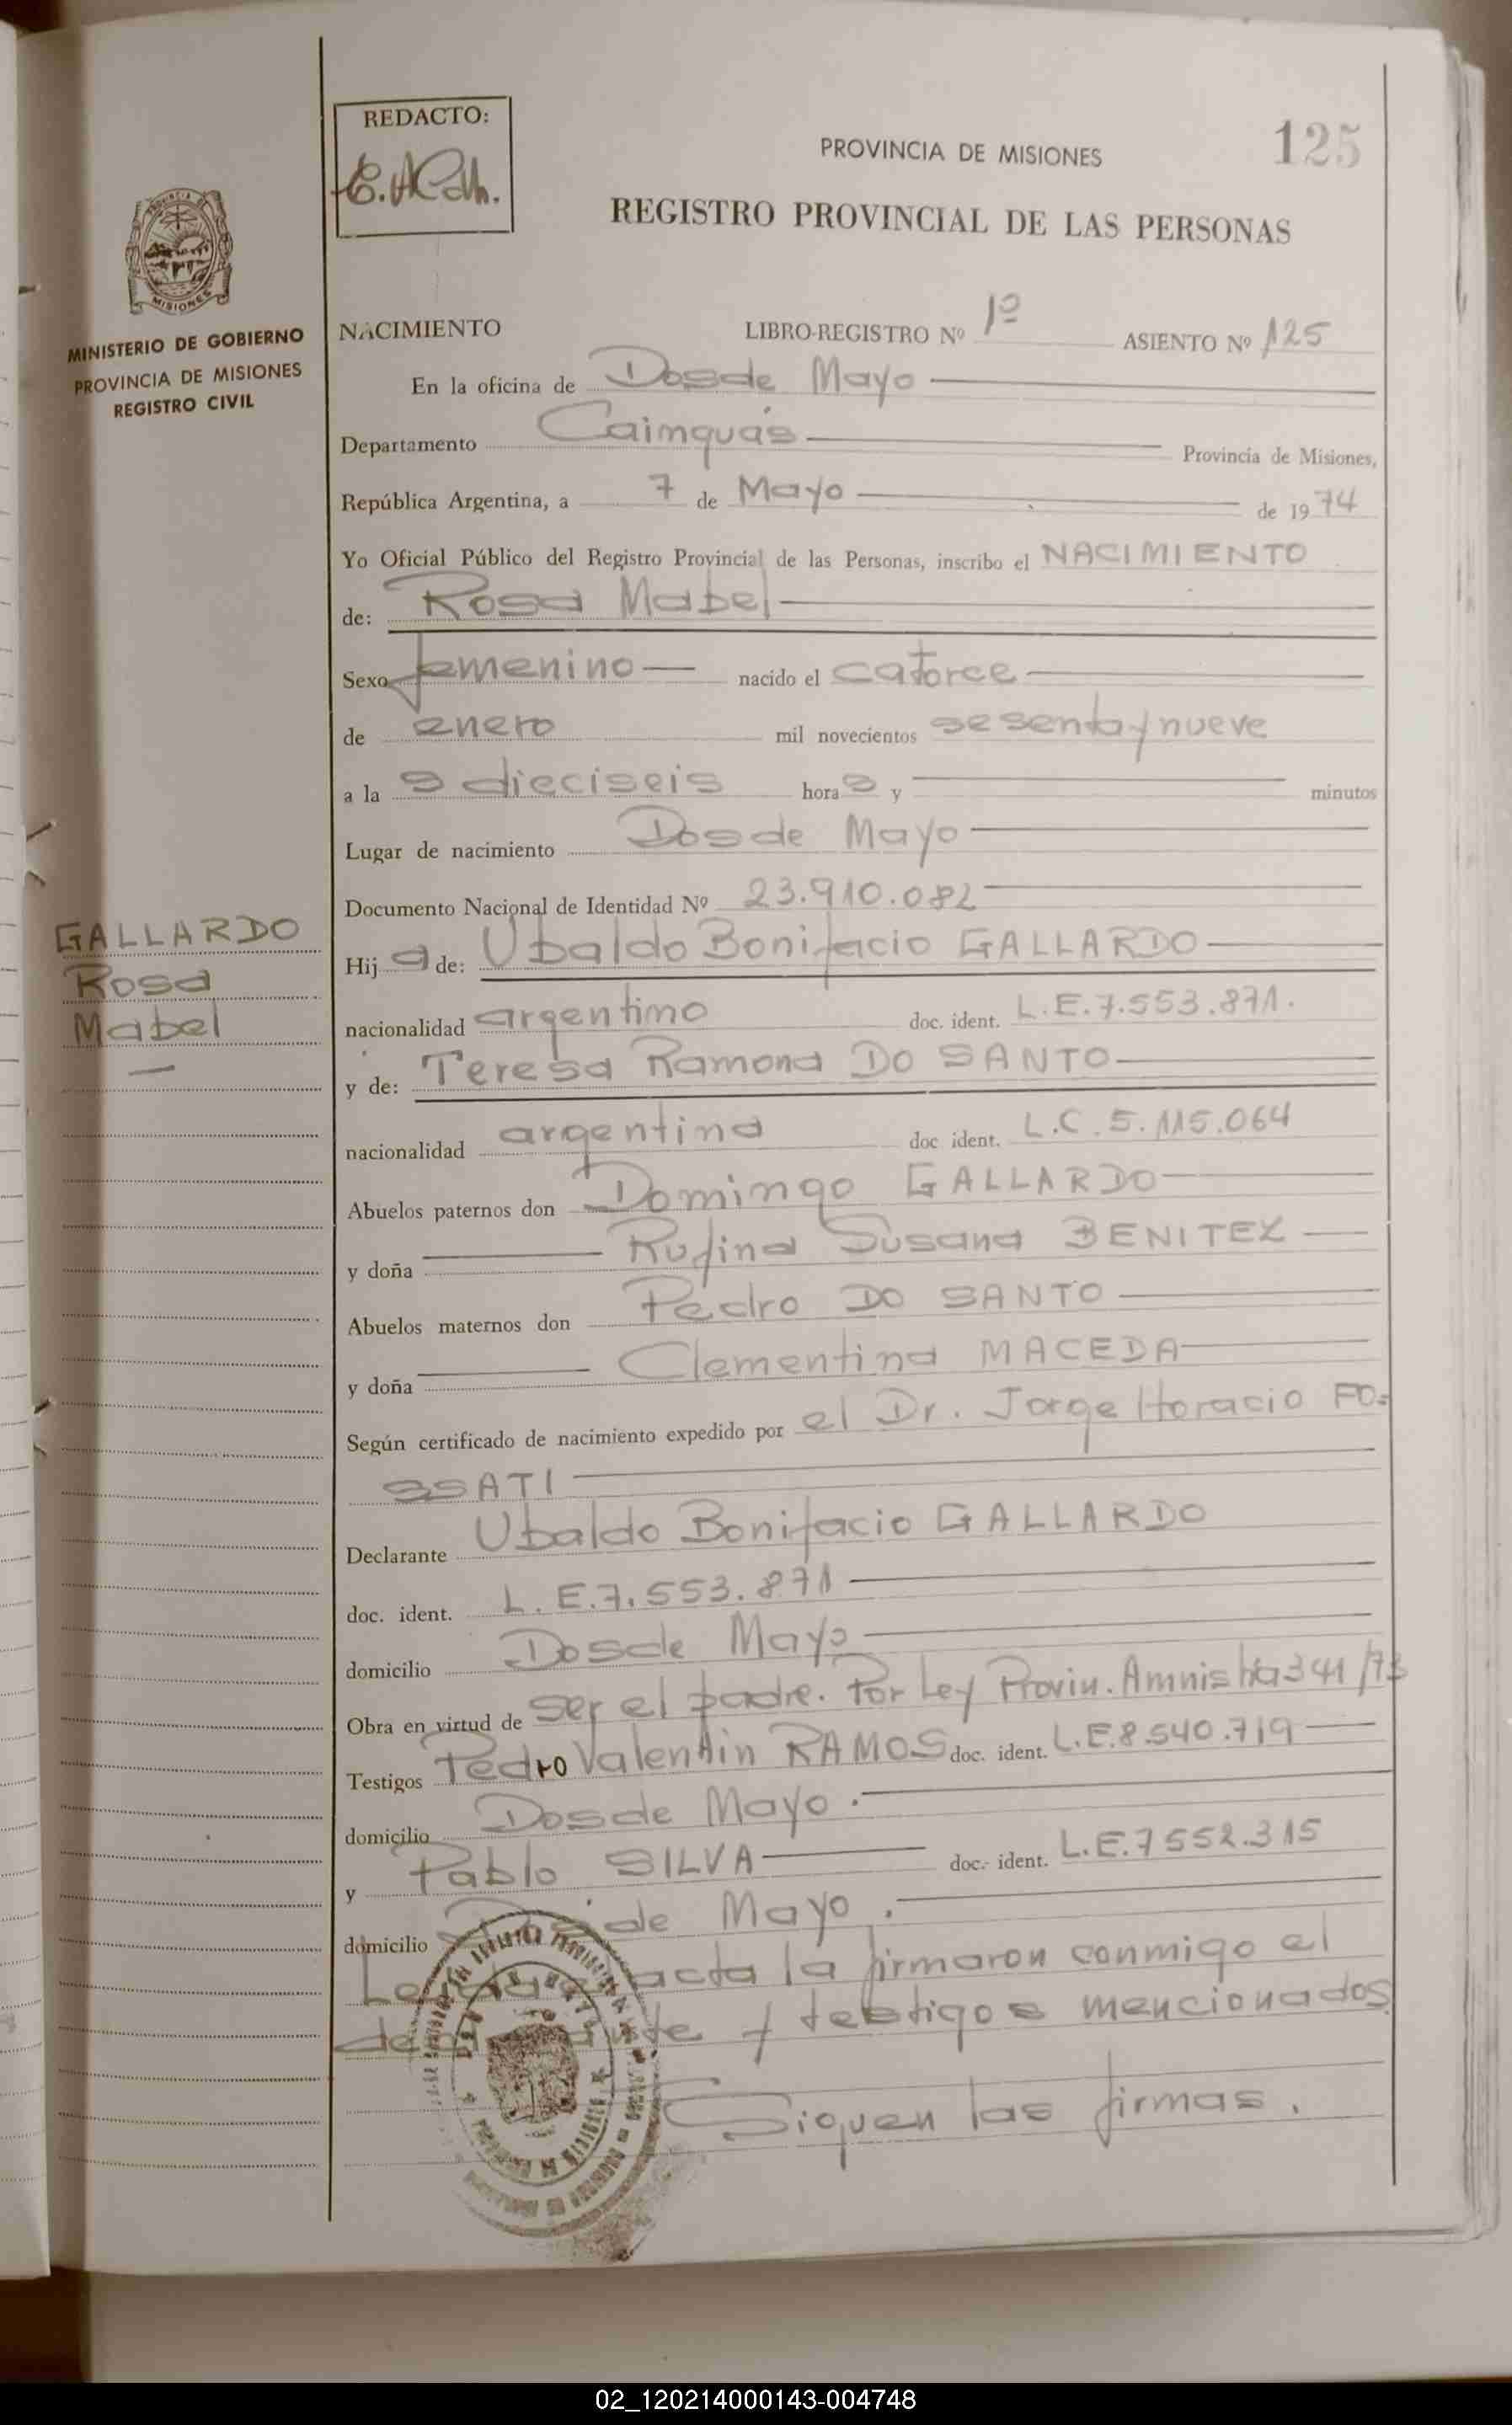 REDACTO:
PROVINCIA DE MISIONES
125
REGISTRO PROVINCIAL DE LAS PERSONAS
MISIONES
MINISTERIO DE GOBIERNO
PROVINCIA DE MISIONES
REGISTRO CIVIL
NACIMIENTO LIBRO-REGISTRO Nº 1º ASIENTO Nº 125
En la oficina de Dos de Mayo
Departamento Cainguás Provincia de Misiones,
República Argentina, a 7 de Mayo de 1974
Yo Oficial Público del Registro Provincial de las Personas, inscribo el NACIMIENTO
de: Rosa Mabel
Sexo femenino nacido el catorce
de enero mil novecientos sesenta y nueve
a la s dieciseis hora s y minutos
Lugar de nacimiento Dos de Mayo
Documento Nacional de Identidad Nº 23.910.082
GALLARDO
Rosa
Mabel
Hij a de: Ubaldo Bonifacio GALLARDO
nacionalidad argentino doc. ident. L.E.7.553.871.
y de: Teresa Ramona DO SANTO
nacionalidad argentina doc ident. L.C.5.115.064
Abuelos paternos don Domingo GALLARDO
y doña Rufina Susana BENITEZ
Abuelos maternos don Pedro DO SANTO
y doña Clementina MACEDA
Según certificado de nacimiento expedido por el Dr. Jorge Horacio FO=
SSATI
Declarante Ubaldo Bonifacio GALLARDO
doc. ident. L.E.7.553.871
domicilio Dos de Mayo
Obra en virtud de ser el padre. Por Ley Provin. Amnistía 341/73
Testigos Pedro Valentin RAMOS doc. ident. L.E.8.540.719
domicilio Dos de Mayo.
y Pablo SILVA doc.- ident. L.E.7552.315
domicilio Dos de Mayo.
acta la firmaron conmigo el
y testigos mencionados
Siguen las firmas.
02_120214000143-004748